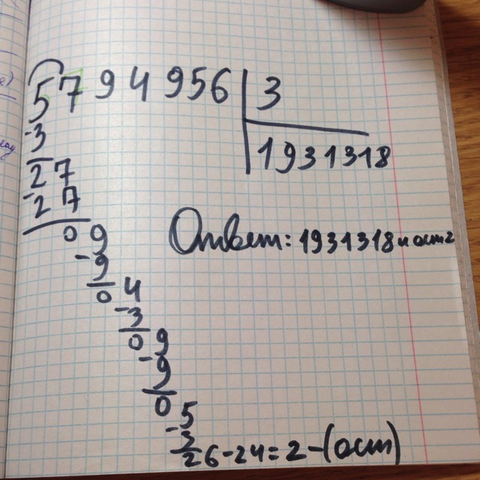 5794956 | 3
-3 1931318
27
-27
09
-9
04
-3
09
-9
0 5
-3
26-24=2-(ост)
Ответ: 1931318 и ост 2